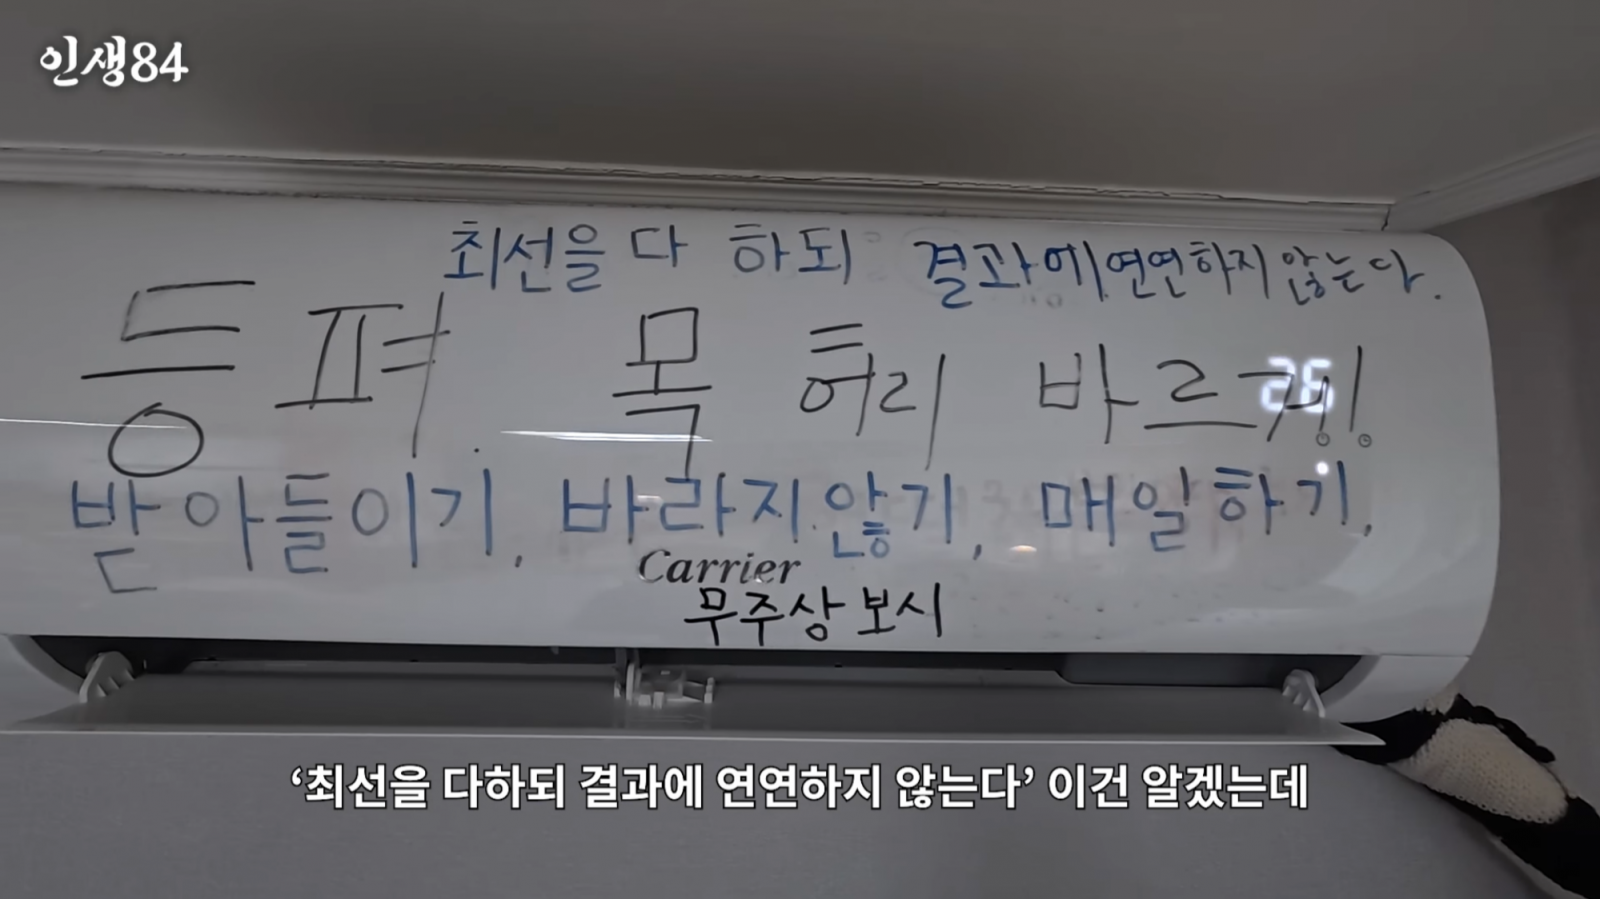 인생84
최선을 다 하되 결과에 연연하지 않는다.
등 펴. 목 허리 바르게!!
26
받아들이기, 바라지않기, 매일하기,
Carrier
무주상 보시
‘최선을 다하되 결과에 연연하지 않는다’ 이건 알겠는데